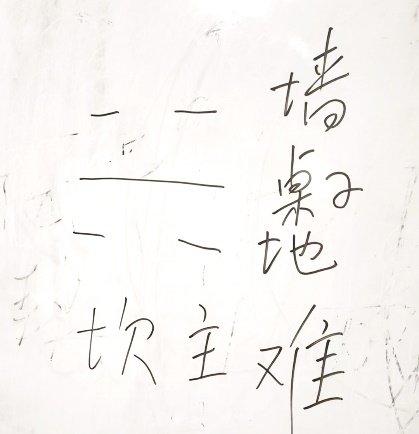 墙
桌子
地
坎主难